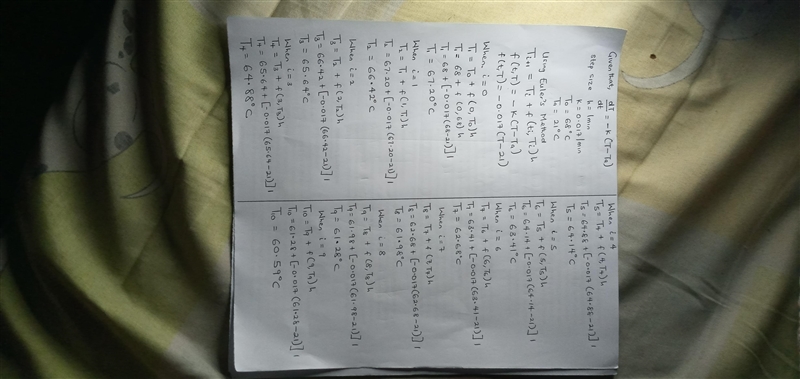 Given that, dT/dt = -k(T-Ta)
step size h = 1min
k = 0.017/min
T0 = 68°C
Ta = 21°C
Using Euler's Method
Ti+1 = Ti + f(ti, Ti)h
f(t,T) = -k(T-Ta)
f(t,T) = -0.017(T-21)
When i=0
T1 = T0 + f(0,T0)h
T1 = 68 + f(0,68)h
T1 = 68 + [-0.017(68-21)]1
T1 = 67.20°C
When i=1
T2 = T1 + f(1,T1)h
T2 = 67.20+[-0.017(67.20-21)]1
T2 = 66.42°C
When i=2
T3 = T2 + f(2,T2)h
T3 = 66.42+[-0.017(66.42-21)]1
T3 = 65.64°C
When i=3
T4 = T3 + f(3,T3)h
T4 = 65.64+[-0.017(65.64-21)]1
T4 = 64.88°C
When i=4
T5 = T4 + f(4,T4)h
T5 = 64.88+[-0.017(64.88-21)]1
T5 = 64.14°C
When i=5
T6 = T5 + f(5,T5)h
T6 = 64.14+[-0.017(64.14-21)]1
T6 = 63.41°C
When i=6
T7 = T6 + f(6,T6)h
T7 = 63.41+[-0.017(63.41-21)]1
T7 = 62.68°C
When i=7
T8 = T7 + f(7,T7)h
T8 = 62.68+[-0.017(62.68-21)]1
T8 = 61.98°C
When i=8
T9 = T8 + f(8,T8)h
T9 = 61.98+[-0.017(61.98-21)]1
T9 = 61.28°C
When i=9
T10 = T9 + f(9,T9)h
T10 = 61.28+[-0.017(61.28-21)]1
T10 = 60.59°C